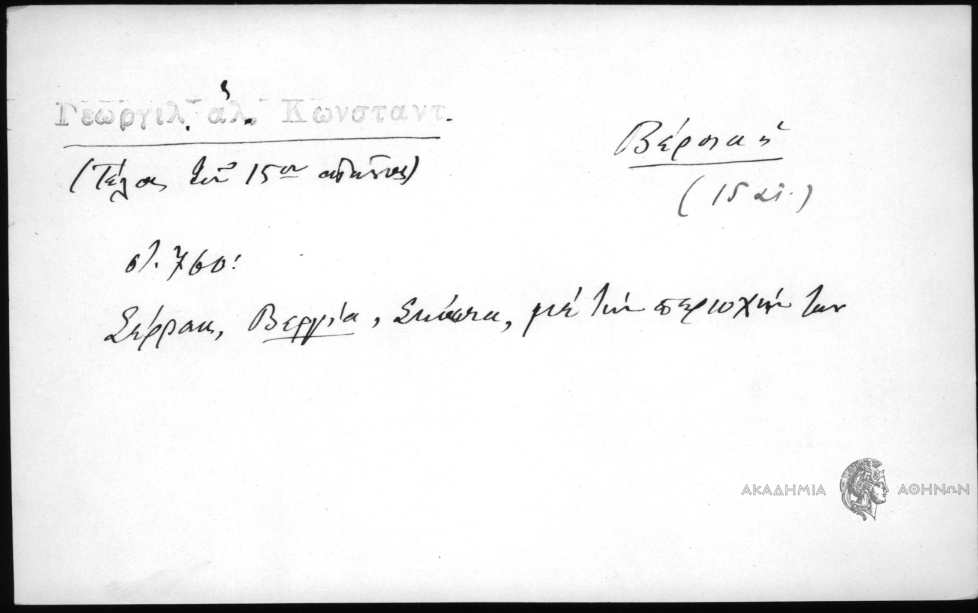 Γεωργιλ. ἁλ. Κωνσταντ.
(Τέλος τοῦ 15ου αἰῶνος)
Βέρροια ἡ
(15 αἰ.)
στ. 760:
Σέρρας, Βεργία, Σκόπια, μὲ τὴν περιοχήν των
ΑΚΑΔΗΜΙΑ ΑΘΗΝΩΝ